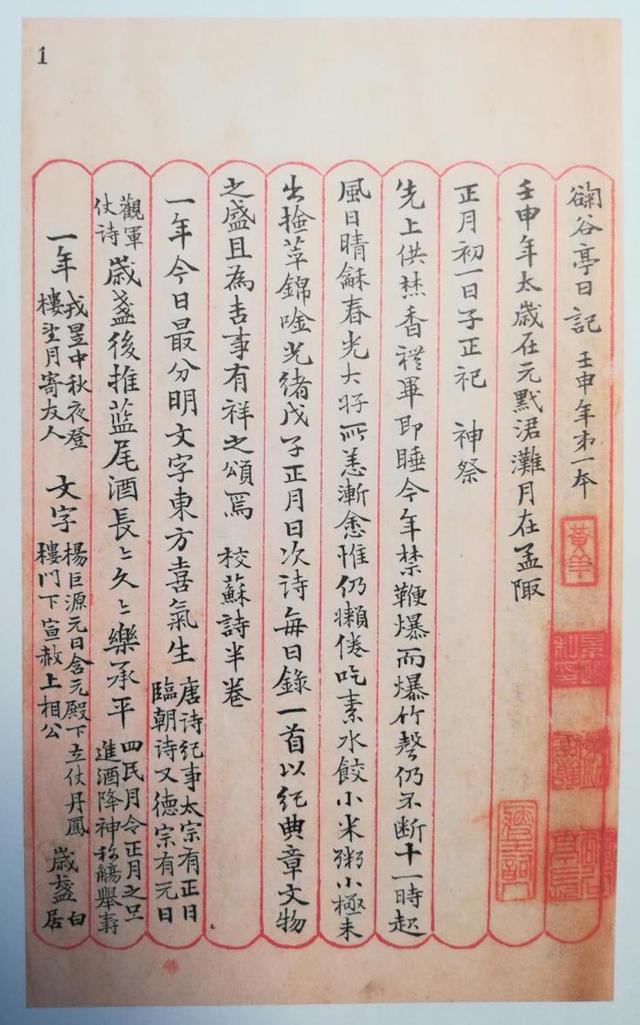 1
鞠谷亭日記 壬申年第一本
黄羊
壬申年太歲在元黓涒灘月在孟陬
正月初一日子正祀 神祭
先上供焚香禮畢即睡今年禁鞭爆而爆竹聲仍不斷十一時起
風日晴龢春光大好所恙漸愈惟仍懶倦吃素水餃小米粥小極未
出撿萃錦唫光緒戊子正月日次詩每日錄一首以紀典章文物
之盛且為吉事有祥之頌焉 校蘇詩半卷
一年今日最分明文字東方喜氣生 唐詩紀事太宗有正日
臨朝詩又德宗有元日
觀軍
仗詩 歲盞後推藍尾酒長〻久〻樂承平 四民月令正月之旦
進酒降神称觴舉壽
一年 戎昱中秋夜登
樓望月寄友人 文字 楊巨源元日含元殿下立仗丹鳳
樓門下宣赦上相公 歲盞 白
居